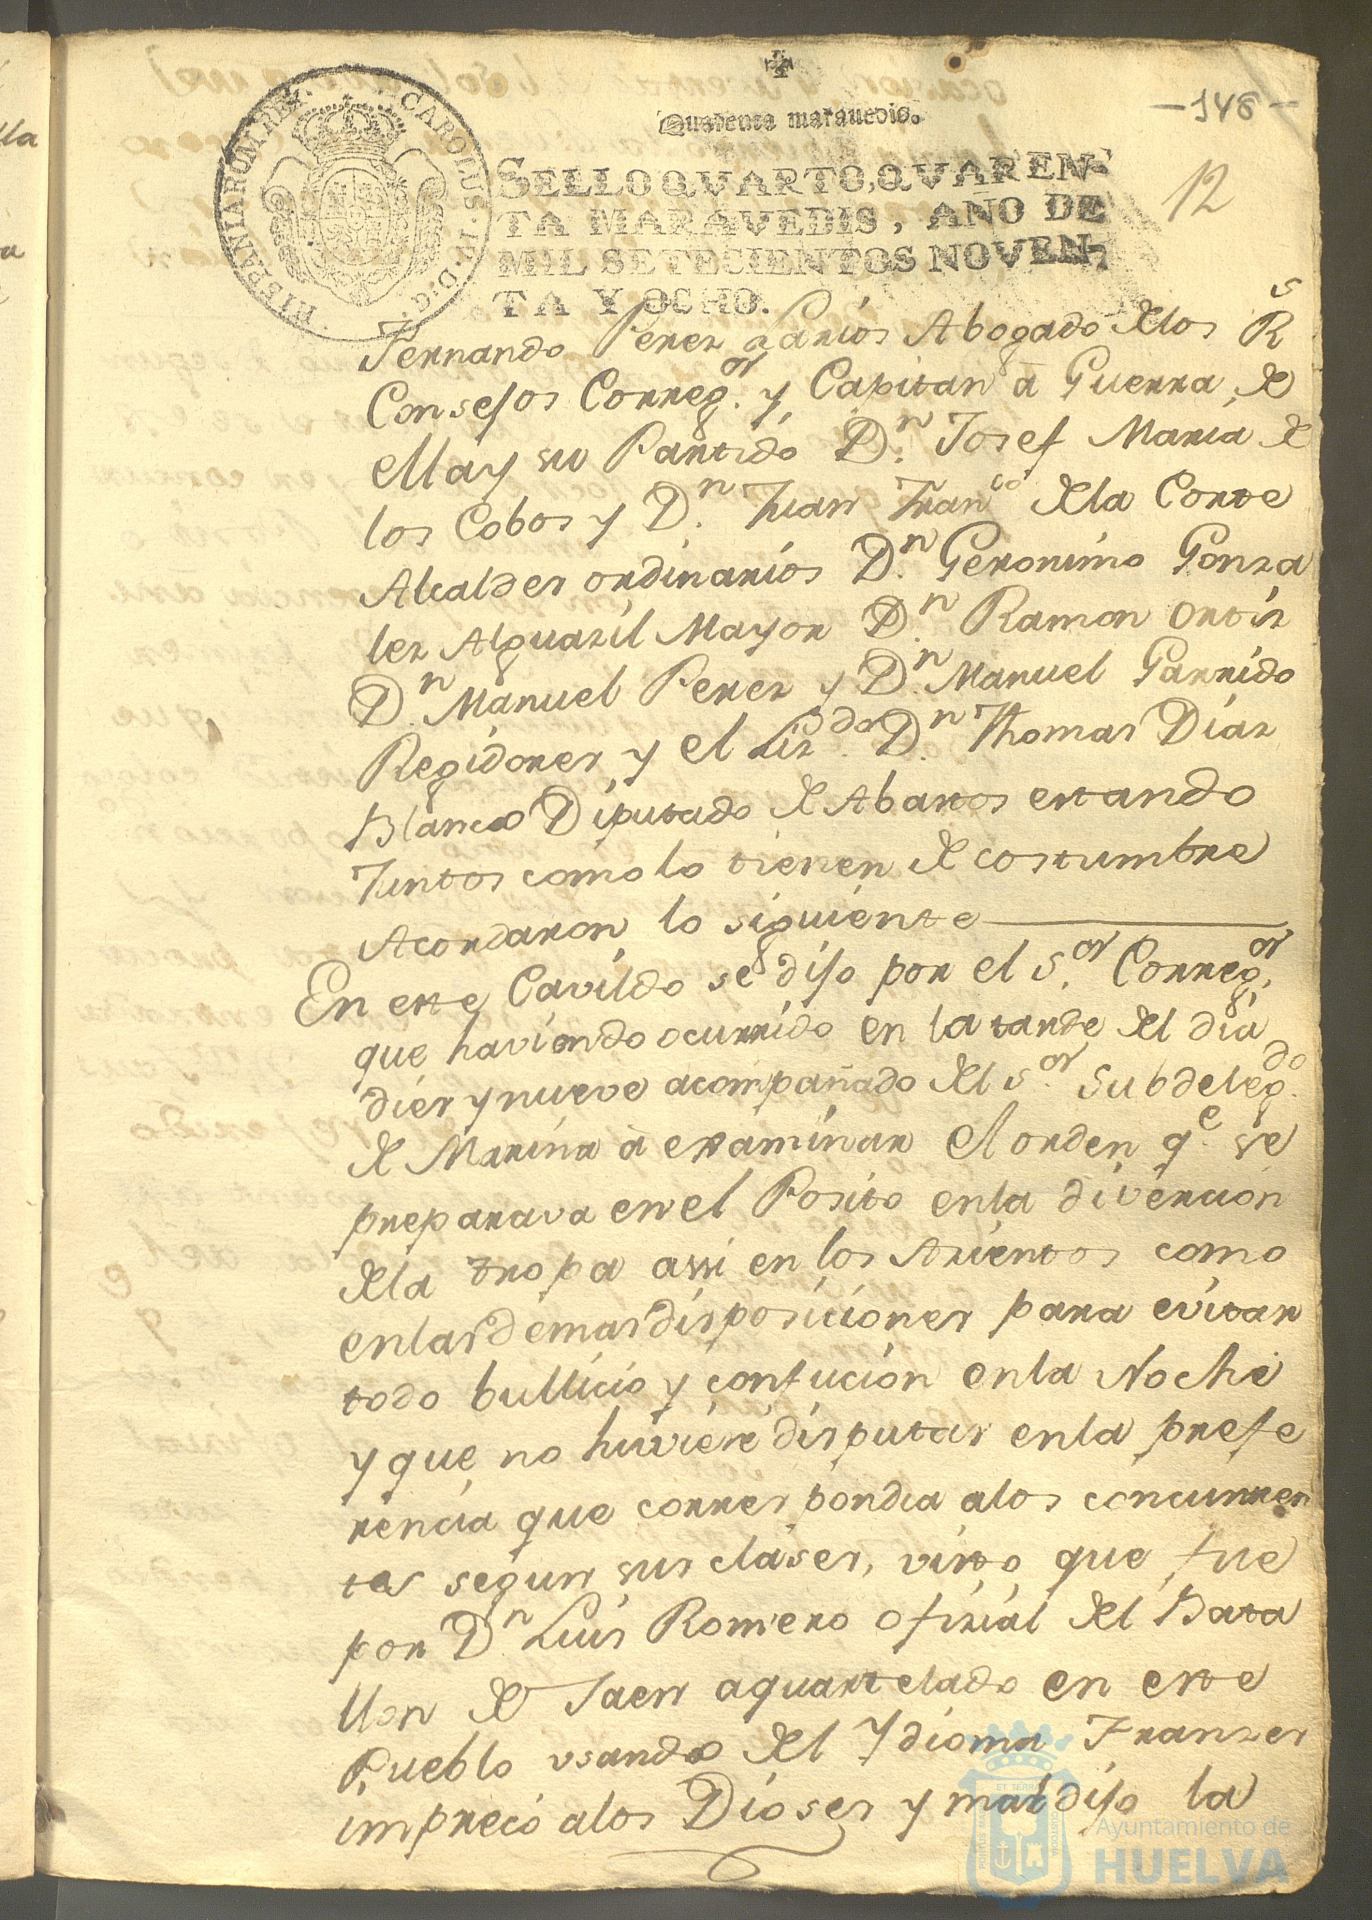 -148-
12
Quarenta marauedis.
SELLO QVARTO, QVAREN-
TA MARAVEDIS, AÑO DE
MIL SETECIENTOS NOVEN-
TA Y OCHO.
CAROLUS·IV·D·G· HISPANIARUM REX·
Fernando Perez Larios Abogado delos Rs
Consejos Correg.or y Capitan à Guerra de
ella y su Partido D.n Josef Maria de
los Cobos y D.n Juan Franco dela Corte
Alcaldes ordinarios D.n Geronimo Gonza
lez Alguazil Mayor D.n Ramon Ortiz
D.n Manuel Perez y D.n Manuel Garrido
Regidores y el Liz.do D.n Thomas Diaz
Blanco Diputado de Abastos estando
Juntos como lo tienen de costumbre
Acordaron lo siguiente
En este Cavildo se dijo por el S.or Correg.or
que haviendo ocurrido en la tarde del dia
diez y nueve acompañado del S.or Subdeleg.do
de Marina à examinar el orden q.e se
preparava en el Posito enla divercion
dela tropa assi en los Acientos como
enlas demas disposiciones para evitar
todo bullicio y confucion enla Noche
y que no huviere disputas enla prefe
rencia que correspondia alos concurren
tes segun sus clases, visto que fue
por D.n Luis Romero Oficial del Bata
llon de Jaen aquartelado en este
Pueblo usando del Ydioma Franzes
imprecó alos Dioses y maldijo la
Ayuntamiento de
HUELVA